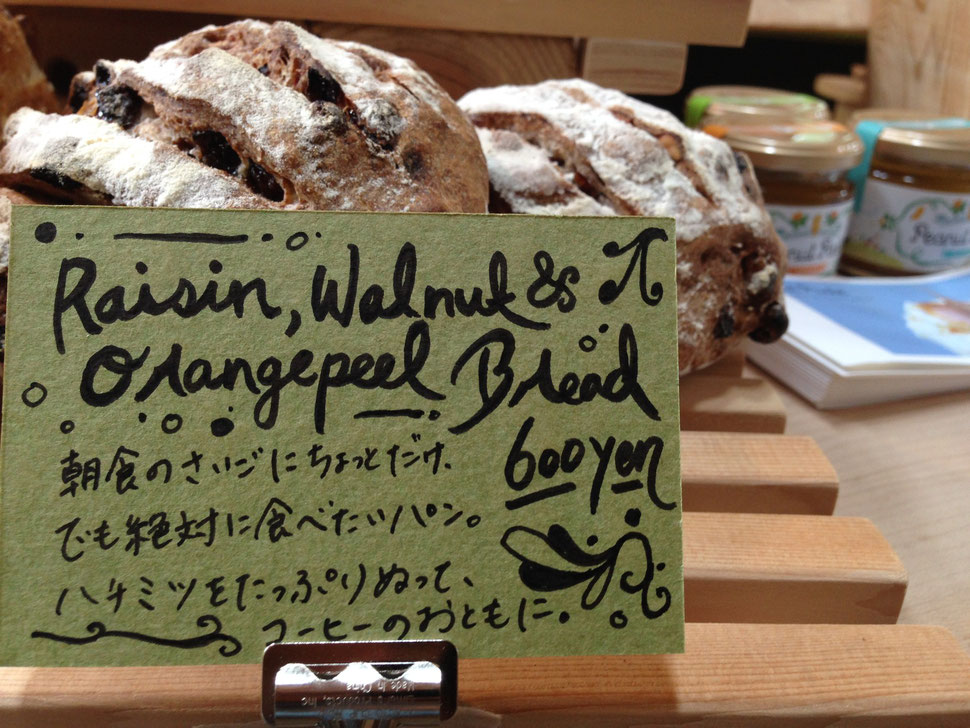 Raisin, Walnut &
Orangepeel Bread
600yen
朝食のさいごにちょっとだけ、
でも絶対に食べたいパン。
ハチミツをたっぷりぬって、
コーヒーのおともに。
Made in China
Peanut